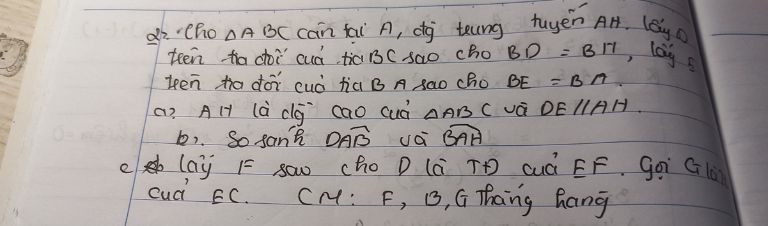 2. Cho △ABC cân tại A, đg trung tuyến AH. lấy D
trên tia đối cuả tia BC sao cho BD = BH, lấy E
trên tia đối cuả tia BA sao cho BE = BA.
a, AH là đg cao cuả △ABC và DE//AH.
b, So sánh DAB và BAH
c lấy F sao cho D là TĐ cuả EF. Gọi G là
cuả EC. CM: F, B, G thẳng hàng